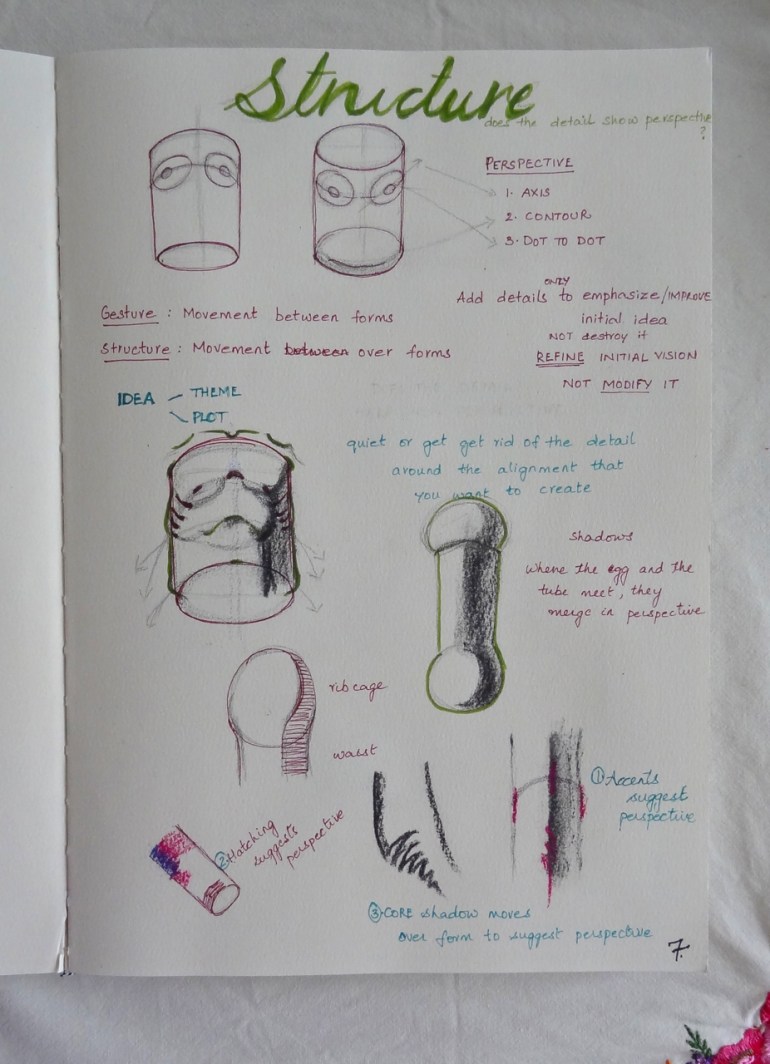 Structure
does the detail show perspective
?
PERSPECTIVE
1. AXIS
2. CONTOUR
3. DOT TO DOT
ONLY
Add details to emphasize/IMPROVE
initial idea
NOT destroy it
REFINE INITIAL VISION
NOT MODIFY IT
Gesture : Movement between forms
Structure : Movement between over forms
IDEA
THEME
PLOT
quiet or get get rid of the detail
around the alignment that
you want to create
Shadows
Where the egg and the
tube meet, they
merge in perspective
rib cage
waist
① Accents
suggest
perspective
② Hatching
suggests
perspective
③ CORE shadow moves
over form to suggest perspective
7.